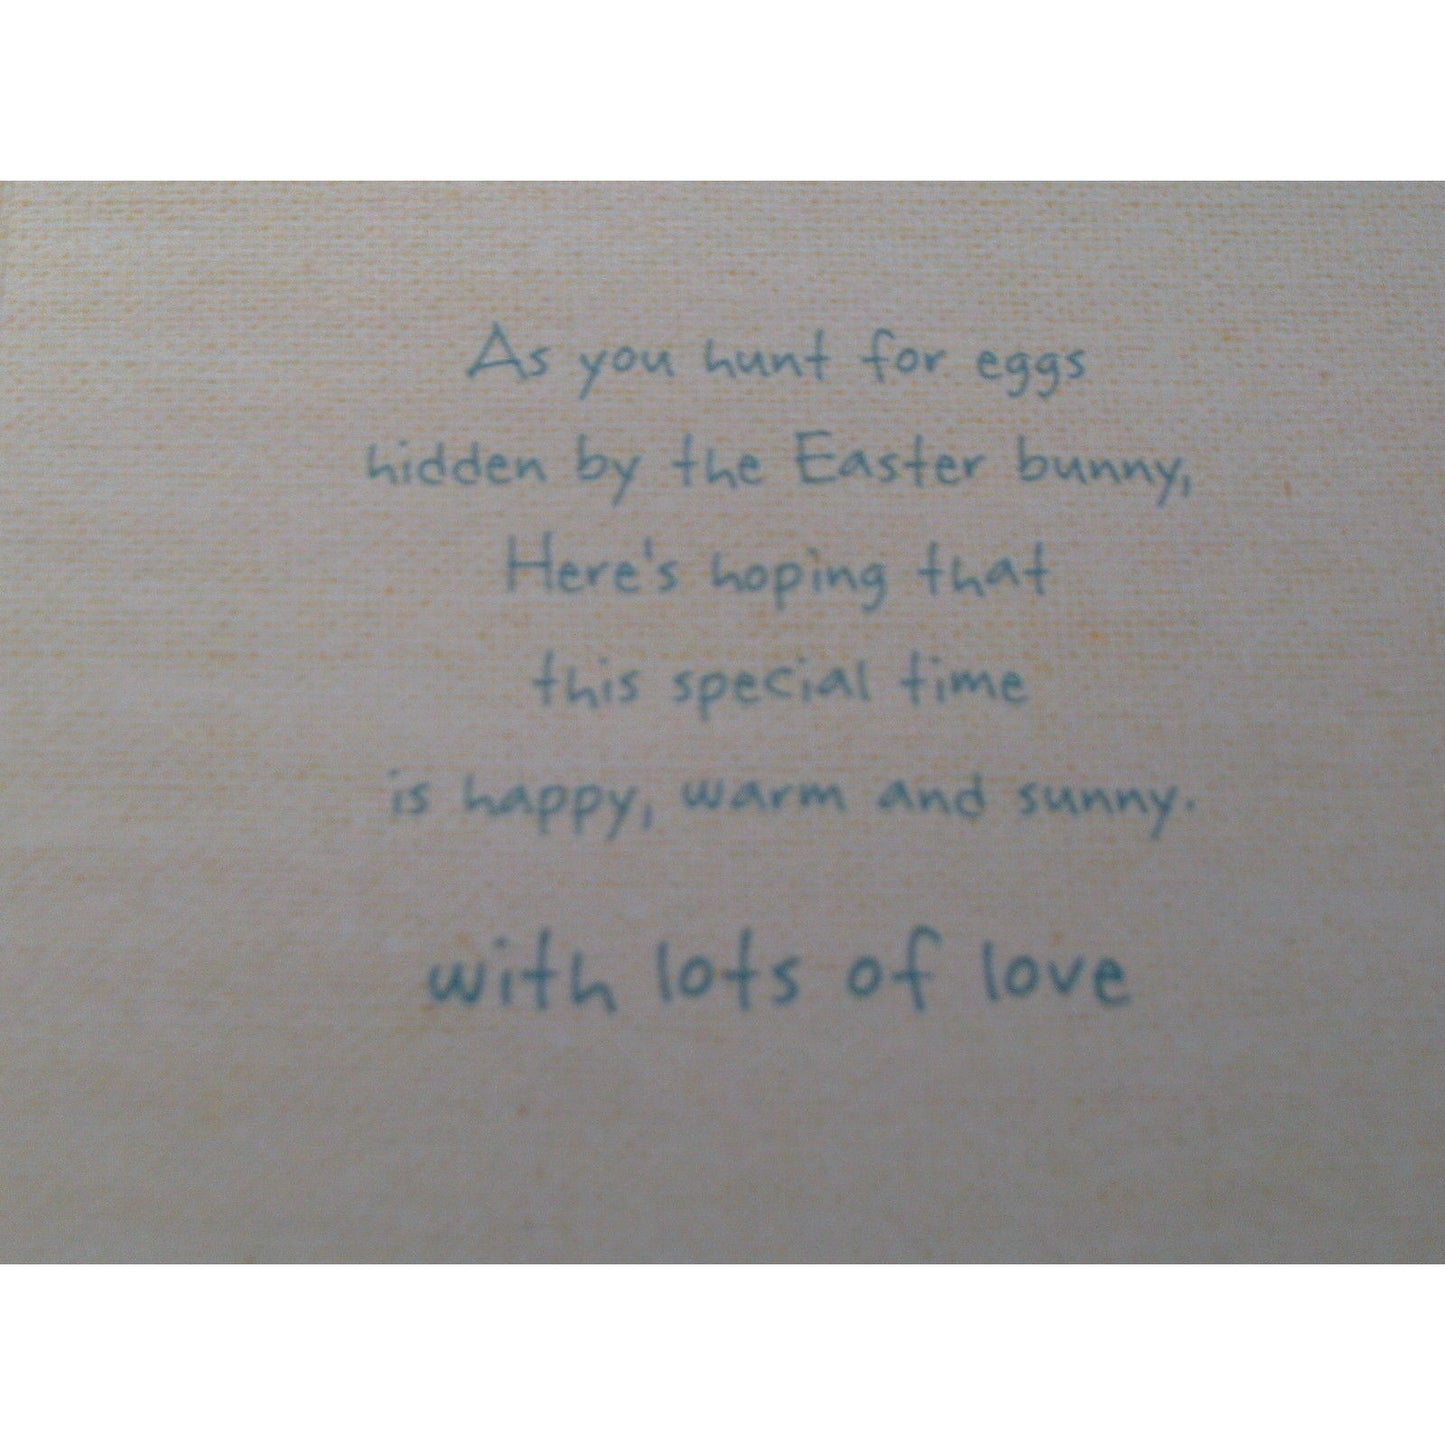 As you hunt for eggs
hidden by the Easter bunny,
Here's hoping that
this special time
is happy, warm and sunny.
with lots of love